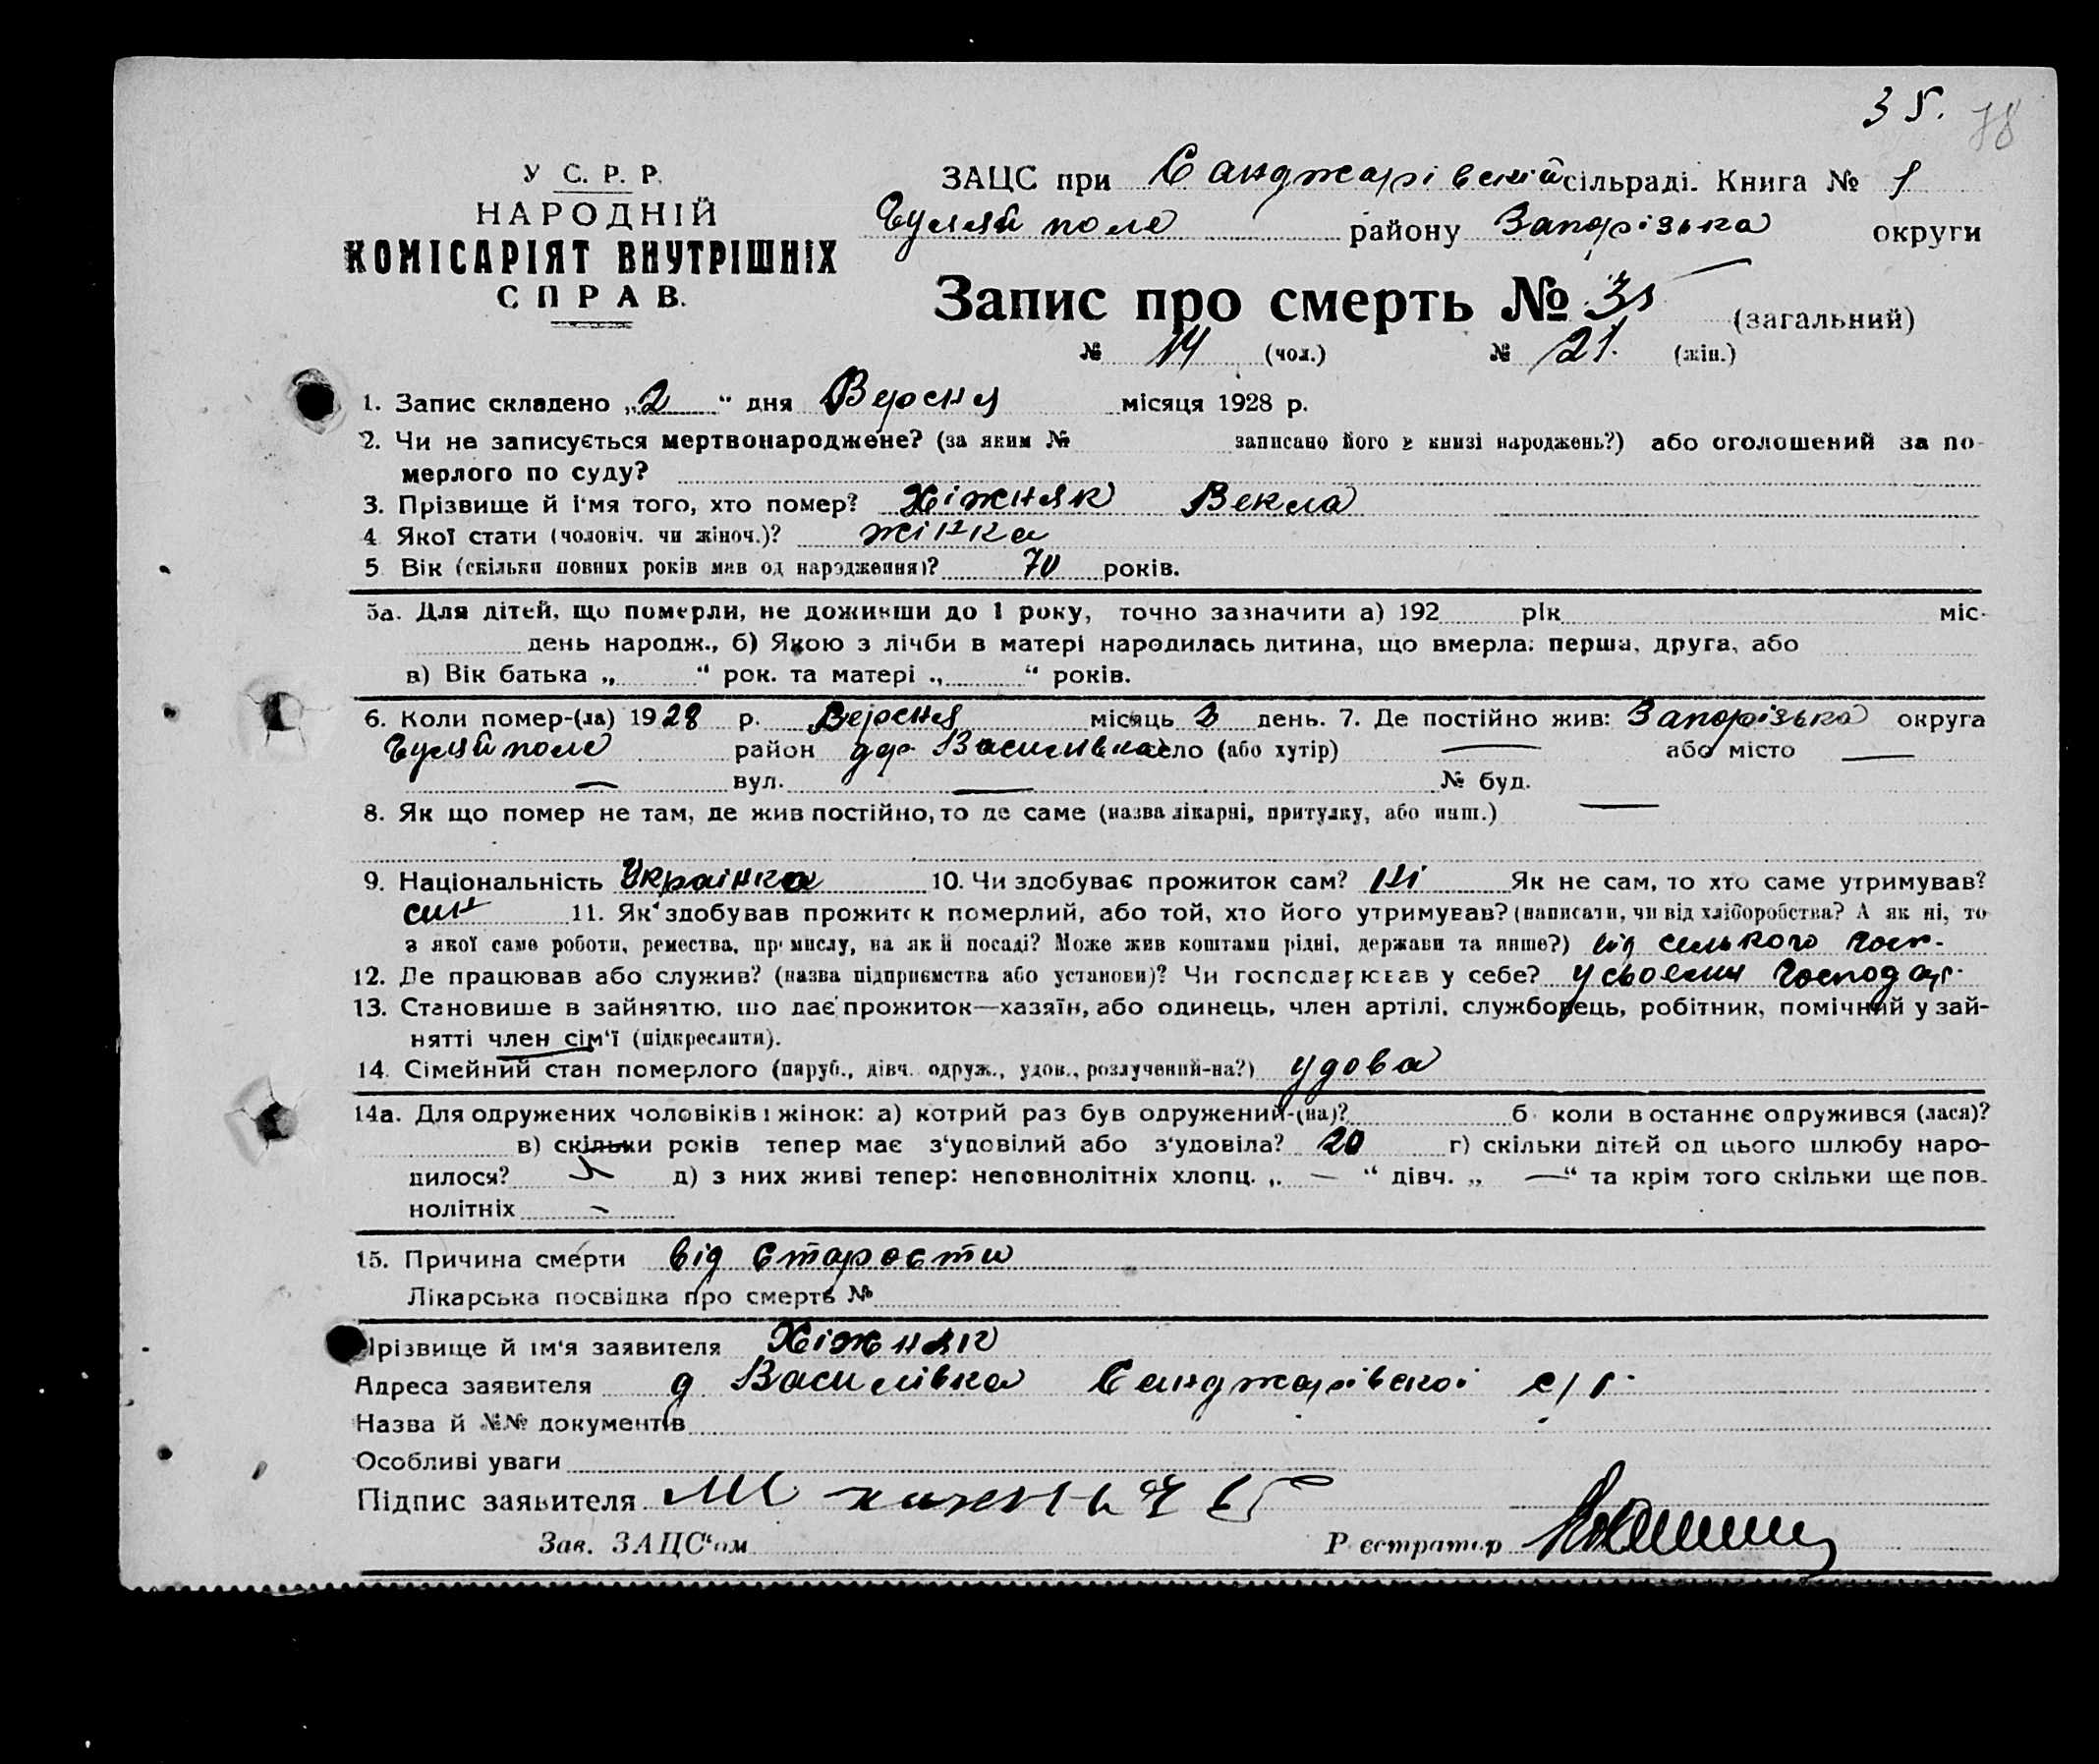 35.
78
У С. Р. Р.
НАРОДНІЙ
КОМІСАРІЯТ ВНУТРІШНІХ
СПРАВ.
ЗАЦС при Санджарівській сільраді. Книга № 1
Гуляй поле району Запорізька округи
Запис про смерть № 35 (загальний)
№ 14 (чол.) № 21. (жін.)
1. Запис складено „2“ дня Вересня місяця 1928 р.
2. Чи не записується мертвонароджене? (за яким № записано його в книзі народжень?) або оголошений за по-
мерлого по суду?
3. Прізвище й і'мя того, хто помер? Хіжняк Векла
4 Якої стати (чоловіч. чи жіноч.)? жінка
5 Вік (скільки повних років мав од народження)? 70 років.
5а. Для дітей, що померли, не доживши до 1 року, точно зазначити а) 192 рік міс.
день народж., б) Якою з лічби в матері народилась дитина, що вмерла: перша, друга, або
в) Вік батька „ “ рок. та матері „ “ років.
6. Коли помер-(ла) 1928 р. Вересня місяць день. 7. Де постійно жив: Запорізька округа
Гуляйполе район Василивка село (або хутір) — або місто —
— вул. — № буд.
8. Як що помер не там, де жив постійно, то де саме (назва лікарні, притулку, або инш.) —
9. Національність Українка 10. Чи здобуває прожиток сам? Ні Як не сам, то хто саме утримував?
син 11. Як здобував прожиток померлий, або той, хто його утримував? (написати, чи від хліборобства? А як ні, то
з якої саме роботи, ремества, промислу, на якій посаді? Може жив коштами рідні, держави та инше?) від сільького госп.
12. Де працював або служив? (назва підприємства або установи)? Чи господарював у себе? у своєму господар.
13. Становище в зайняттю, що дає прожиток—хазяїн, або одинець, член артілі, службовець, робітник, помічний у зай-
нятті член сім'ї (підкреслити).
14. Сімейний стан померлого (паруб., дівч. одруж., удов., розлучений-на?) удова
14а. Для одружених чоловіків і жінок: а) котрий раз був одружений-(на)? б коли востаннє одружився (лася)?
в) скільки років тепер має з'удовілий або з'удовіла? 20 г) скільки дітей од цього шлюбу наро-
дилося? д) з них живі тепер: неповнолітніх хлопц. „ — “ дівч. „ — “ та крім того скільки ще пов-
нолітніх —
15. Причина смерти від старости
Лікарська посвідка про смерть №
Прізвище й ім'я заявителя Хіжняк
Адреса заявителя д Василівка Санджарівскоі с/р.
Назва й №№ документів
Особливі уваги
Підпис заявителя
Зав. ЗАЦС'ом Реєстратор